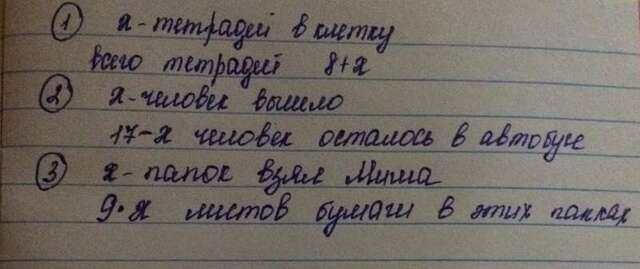 ① x - тетрадей в клетку
всего тетрадей 8+x
② x - человек вышло
17-x человек осталось в автобусе
③ x - папок взял Миша
9·x листов бумаги в этих папках